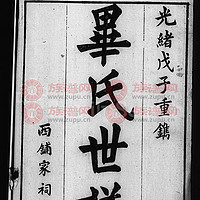 光緒戊子重鐫
畢氏世
西鋪家祠